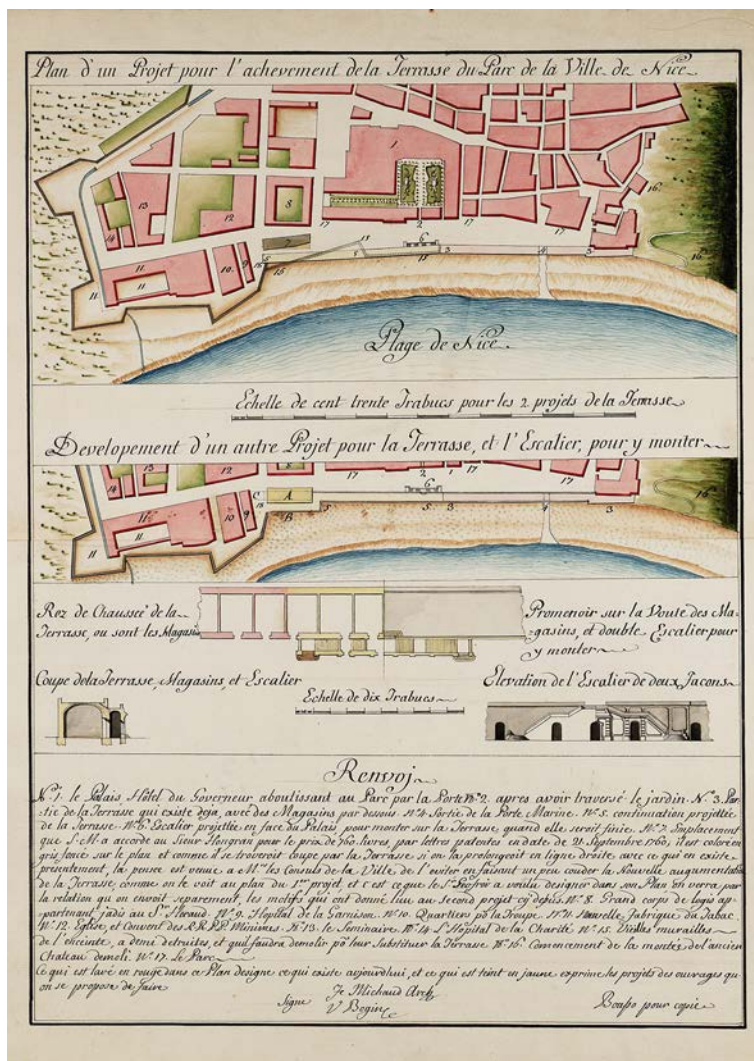 Plan d'un Projet pour l'achevement de la Terrasse du Parc de la Ville de Nice
1
16
14
13
12
8
17
2
17
17
7
13
6
3
4
3
16
5
5
15
18
16
11
11
10
9
11
Plage de Nice
Echelle de cent trente Trabucs pour les 2 projets de la Terrasse
Developement d'un autre Projet pour la Terrasse, et l'Escalier, pour y monter
14
13
12
8
17
2
1
17
17
C
A
6
18
B
5
5
3
4
3
16
11
11
10
9
11
Rez de Chaussée de la
Terrasse, ou sont les Magasins
Promenoir sur la Voute des Ma-
gasins, et double Escalier pour
y monter
Coupe de la Terrasse, Magasins, et Escalier
Echelle de dix Trabucs
Elevation de l'Escalier de deux façons
Renvoj
N.º 1. le Palais, Hôtel du Governeur aboutissant au Parc par la Porte N.º 2. apres avoir traversé le jardin. N.º 3. Par-
tie de la Terrasse qui existe deja, avec des Magasins par dessous. N.º 4. Sortie de la Porte Marine. N.º 5. continuation projettée
de la Terrasse. N.º 6. Escalier projettée en face du Palais, pour monter sur la Terrasse, quand elle seroit finie. N.º 7. Emplacement
que S. M. a accordé au Sieur Hongran pour le prix de 760. livres, par lettres patentes en date de 21. Septembre 1760, il est coloré en
gris foncé sur le plan et comme il se trouveroit coupé par la Terrasse si on la prolongeoit en ligne droite avec ce qui en existe
presentement, la pensée est venue a M.rs les Consuls de la Ville de l'eviter en faisant un peu couder la Nouvelle augmentation
de la Terrasse, comme on le voit au plan du 1.er projet, et c'est ce que le S.r a voulu designer dans son Plan on verra par
la relation qu'on envoit separement, les motifs qui ont donné lieu au second projet cy depuis. N.º 8. Grand corps de logis ap-
partenant jadis au S.r Heraud. N.º 9. Hopital de la Garnison. N.º 10. Quartiers p.r la Troupe. N.º 11. Nouvelle Fabrique du Tabac.
N.º 12. Eglise, et Couvent des R.R.P.P. Minimes. N.º 13. le Seminaire. N.º 14. L'Hopital de la Charité. N.º 15. Vieilles murailles
de l'enceinte, a demi detruites, et qu'il faudra demolir p.r leur Substituer la Terrasse. N.º 16. Comencement de la montée de l'ancien
Chateau demoli. N.º 17. Le Parc
Ce qui est lavé en rouge dans ce Plan designe ce qui existe aujourd'hui, et ce qui est teint en jaune exprime les projets des ouvrages qu'
on se propose de faire
Signe Je Michaud Arch.
V Begin
pour copie